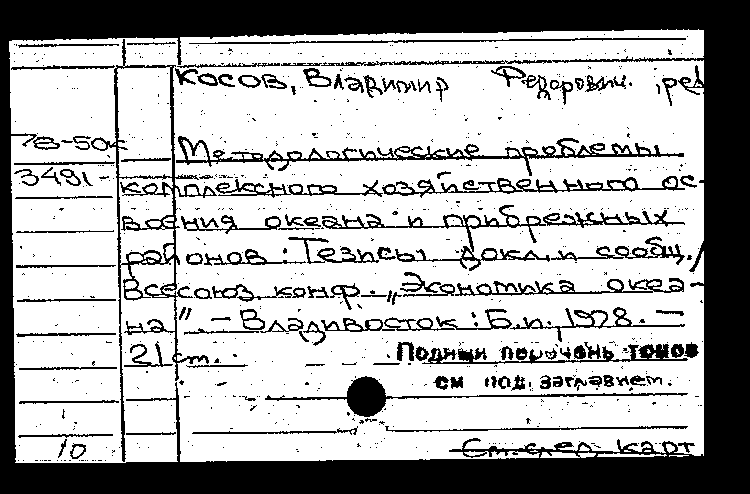 Косов, Владимир Федорович. , ред
78-50к
Методологические проблемы
3491-
комплексного хозяйственного ос-
воения океана и прибрежных
районов : Тезисы докл. и сообщ. /
Всесоюз. конф. „Экономика океа-
на". - Владивосток : Б.и., 1978. -
21 см.
Полный перечень томов
см под заглавием.
См. след. карт
10